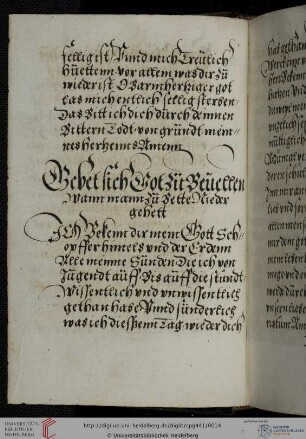 fellig ist Vnnd mich Treülich
hüetten vor allem was dir zü
wieder ist O Barmhertziger got
las mich entlich sellig sterben
Das Bitt ich dich dürch deinnen
Bittern Todt von gründt mein=
nes hertzenns Amenn
Gebet sich Got zü Beüelen
Wann mann zü Bette Nieder
gehett
ICh Bekenn dir mein Gott Sch=
öpffer himels vnd der Erdenn
Alle meinne Sünden Die ich von
Jügendt aüff Bis aüff die stündt
Wissentlich vnd vnwissentlich
gethan habe Vnnd sünderlich
was ich diessenn Tag wieder dich
UNIVERSITÄTS-
BIBLIOTHEK
HEIDELBERG
http://digi.ub.uni-heidelberg.de/diglit/cpg441/0014
© Universitätsbibliothek Heidelberg